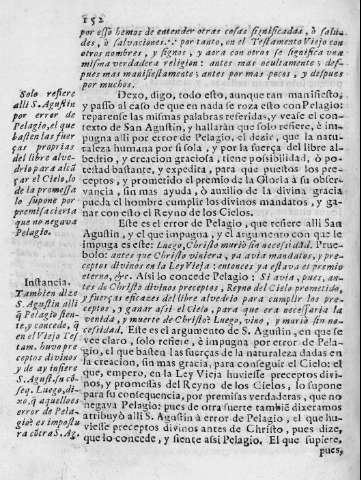 152
por esso hemos de entender otras cosas significadas, ò salu-
des, ò salvaciones. por tanto, en el Testamento Viejo con
otros nombres, y signos, y aora con otros se significa una
misma verdadera religion: antes mas ocultamente; des-
pues mas manifiestamente: antes por mas pocos, y despues
por muchos.
Dexo, digo, todo esto, aunque tan manifiesto,
y passo al caso de que en nada se roza esto con Pelagio:
reparense las mismas palabras referidas, y vease el con-
texto de San Agustin, y hallaràn que solo refiere, è im-
pugna alli por error de Pelagio, el dezir, que la natu-
raleza humana por si sola, y por la fuerça del libre al-
bedrio, y creacion graciosa, tiene possibilidad, ò po-
testad bastante, y expedita, para que puestos los pre-
ceptos, y prometido el premio de la Gloria à su obser-
vancia, sin mas ayuda, ò auxilio de la divina gracia
pueda el hombre cumplir los divinos mandatos, y ga-
nar con esto el Reyno de los Cielos.
Este es el error de Pelagio, que refiere alli San
Agustin, y el que impugna, y el argumento con que le
impuga es este: Luego, Christo muriò sin necessidad. Prue-
bolo: antes que Christo viniera, ya avia mandatos, y pre-
ceptos divinos en la Ley Vieja: entonces ya estava el premio
eterno, &c. Assi lo concede Pelagio: Si avia, pues, an-
tes de Christo divinos preceptos, Reyno del Cielo prometido,
y fuerças eficazes del libre alvedrio para cumplir los pre-
ceptos, y ganar assi el Cielo, para que era necessaria la
venida, y muerte de Christo? Luego, vino, y muriò sin ne-
cessidad. Este es el argumento de S. Agustin, en que se
vee claro, solo refiere, è impugna por error de Pela-
gio, el que basten las fuerças de la naturaleza dadas en
la creacion, sin mas gracia, para conseguir el Cielo: el
que, empero, en la Ley Vieja huviesse preceptos divi-
nos, y promessas del Reyno de los Cielos, lo supone
para su consequencia, por premisas verdaderas, que no
negava Pelagio: pues de otra suerte tambiẽ dixeramos
atribuyò alli S. Agustin à error de Pelagio, el que hu-
viesse preceptos divinos antes de Christo, pues dize,
que lo concede, y siente assi Pelagio. El que supiere,
pues,
Solo refiere
alli S. Agustin
por error de
Pelagio, el que
basten las fuer
ças proprias
del libre alve-
drio para alcã
çar el Cielo, lo
de la promessa
lo supone por
premissa cierta
que no negava
Pelagio.
Instancia.
Tambien dize
S. Agustin alli
q̃ Pelagio sien-
te, y concede, q̃
en el Viejo Tes
tam. huvo pre
ceptos divinos
y de ay infiere
S. Agust. su cõ
seq. Luego, di-
xo, q̃ aquello es
error de Pela-
gio? es impostu
ra cõtra S. Ag.